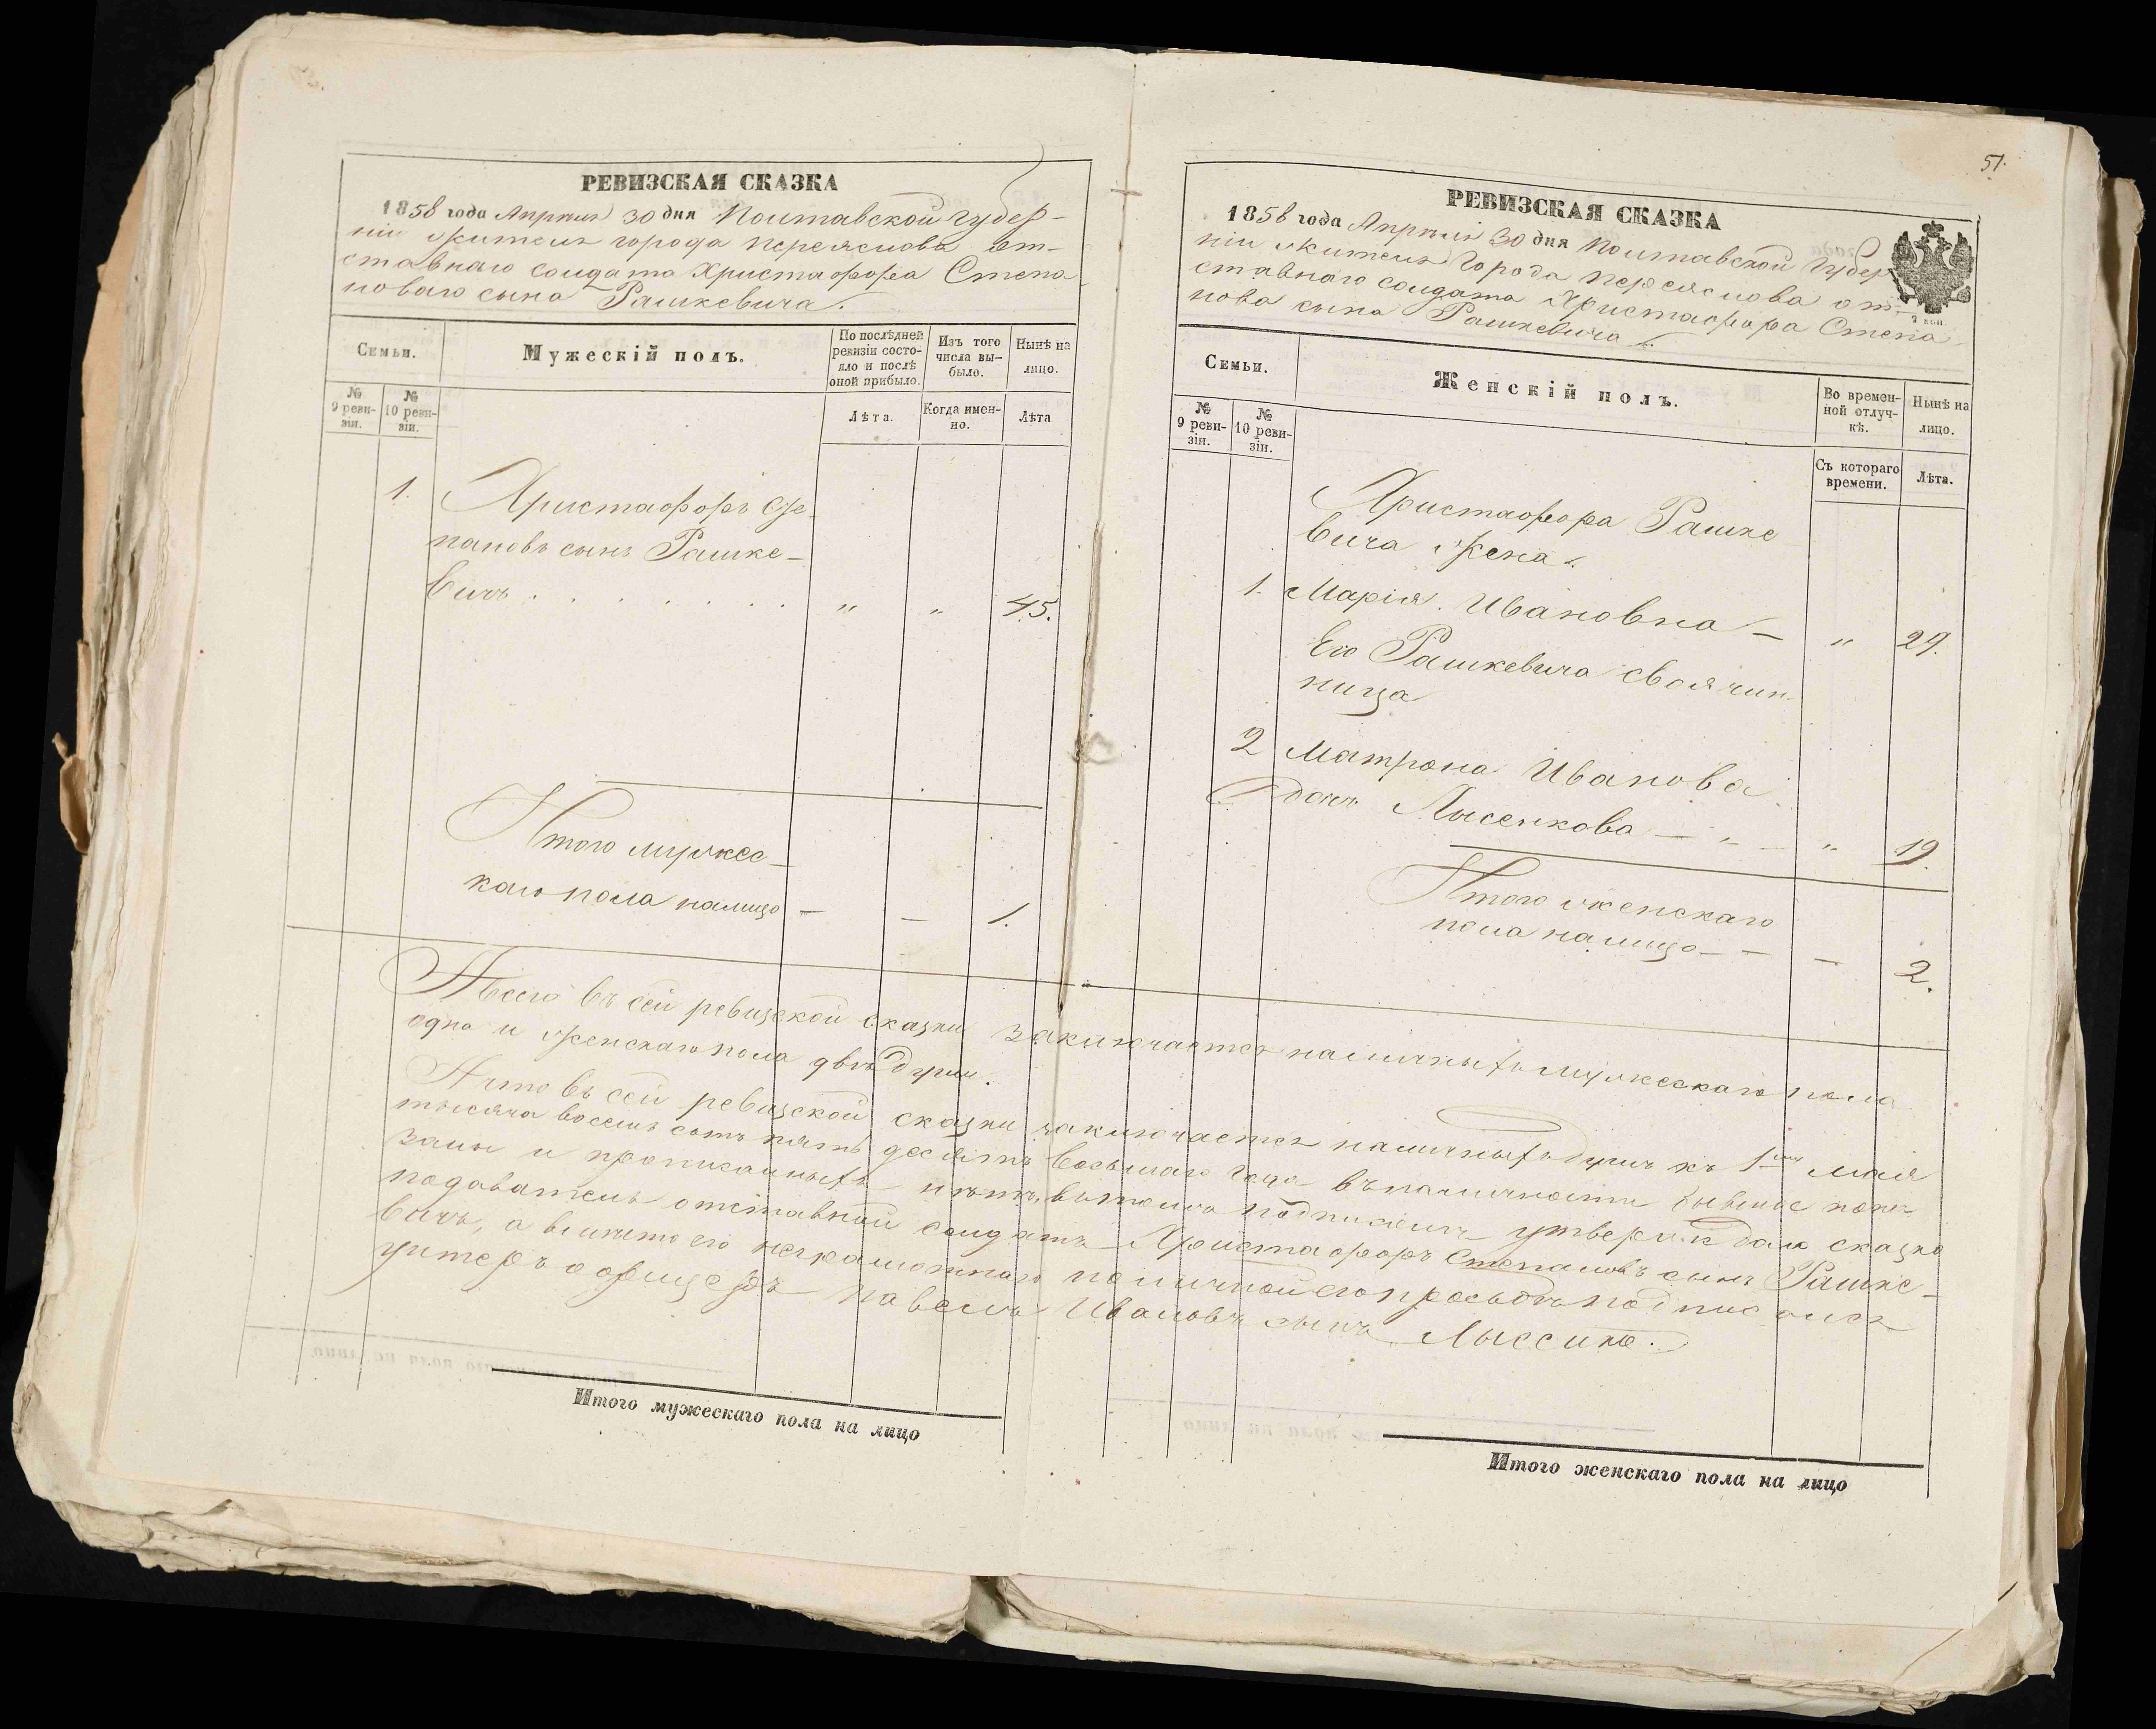 51.
РЕВИЗСКАЯ СКАЗКА
1858 года Апреля 30 дня Полтавской губер-
ніи жителя города Переяслова от-
ставнаго солдата Христафора Степа-
новаго сына Рашкевича.
Семьи.
Мужескій полъ.
По послѣдней ревизіи состо-
яло и послѣ
оной прибыло.
Изъ того
числа вы-
было.
Нынѣ на
лицо.
№
9 реви-
зіи.
№
10 реви-
зіи.
Лѣта.
Когда имен-
но.
Лѣта
1. Христафоръ Сте-
пановъ сынъ Рашке-
вичъ . . . . . . . " " 45.
Итого мужес-
каго пола налицо — — 1.
РЕВИЗСКАЯ СКАЗКА
1858 года Апреля 30 дня Полтавской Губер
ніи жителя Города Переяслова от-
ставнаго солдата Христафора Степа-
нова сына Рашкевича.
Семьи.
Женскій полъ.
Во времен-
ной отлуч-
кѣ.
Нынѣ на
лицо.
№
9 реви-
зіи.
№
10 реви-
зіи.
Съ котораго
времени.
Лѣта.
Христафора Рашке
вича жена.
1. Марія Ивановна — " 29.
Его Рашкевича своячин-
ница
2 Матрона Иванова
дочь Лысенкова — " — " 19.
Итого женскаго
пола налицо — — — 2.
Всего въ сей ревизской сказки заключается наличныхъ мужескаго пола
одна и женскаго пола двѣ души.
А что въ сей ревизской сказки заключается наличныхъ душъ къ 1 мая
тысяча восемь сотъ пять десятъ восьмаго года въ наличности бывшіе пока-
заны и прописанныхъ нѣтъ, въ томъ подписомъ утверждаю сказко
податель отставной солдатъ Христафоръ Степановъ сынъ Рашке-
вичъ, а вмѣсто его неграмотнаго по личной его просьбѣ подписался
унтеръ офицеръ Павелъ Ивановъ сынъ
Итого мужескаго пола на лицо
Итого женскаго пола на лицо